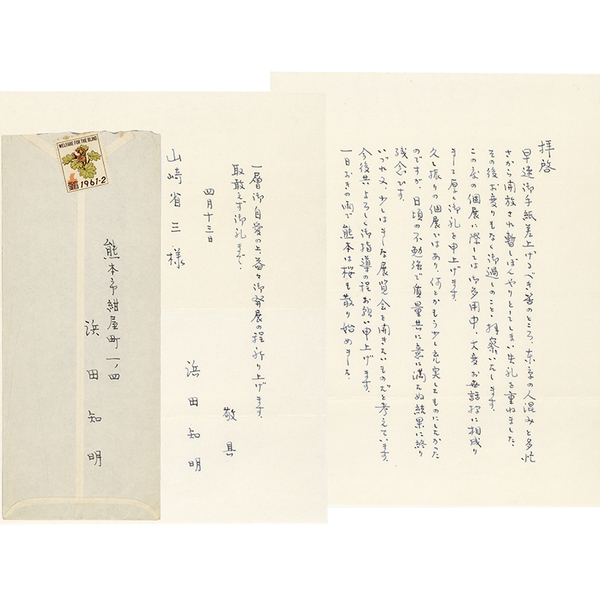 拝啓
早速御手紙差上げるべき筈のところ、東京の人混みと多忙
さから開放され暫しぼんやりとしてしまい失礼を重ねました。
その後お変りもなく御過しのことゝ拝察いたします。
この度の個展に際しては御多用中、大変お世話様に相成り
まして厚く御礼を申上げます。
久し振りの個展ではあり、何とかもう少し充実したものにしたかった
のですが、日頃の不勉強で質量共に意に満たぬ結果に終り
残念です。
いづれ又、少しはましな展覧会を開きたいものだと考えています。
今後共よろしく御指導の程お願い申上げます。
一日おきの雨で、熊本は桜も散り始めました。
一層御自愛の上益々御発展の程祈り上げます。
取敢えず御礼まで。
敬具
四月十三日
浜田知明
山崎省三様
WELFARE FOR THE BLIND
1961-2
熊本市紺屋町一ノ四
浜田知明